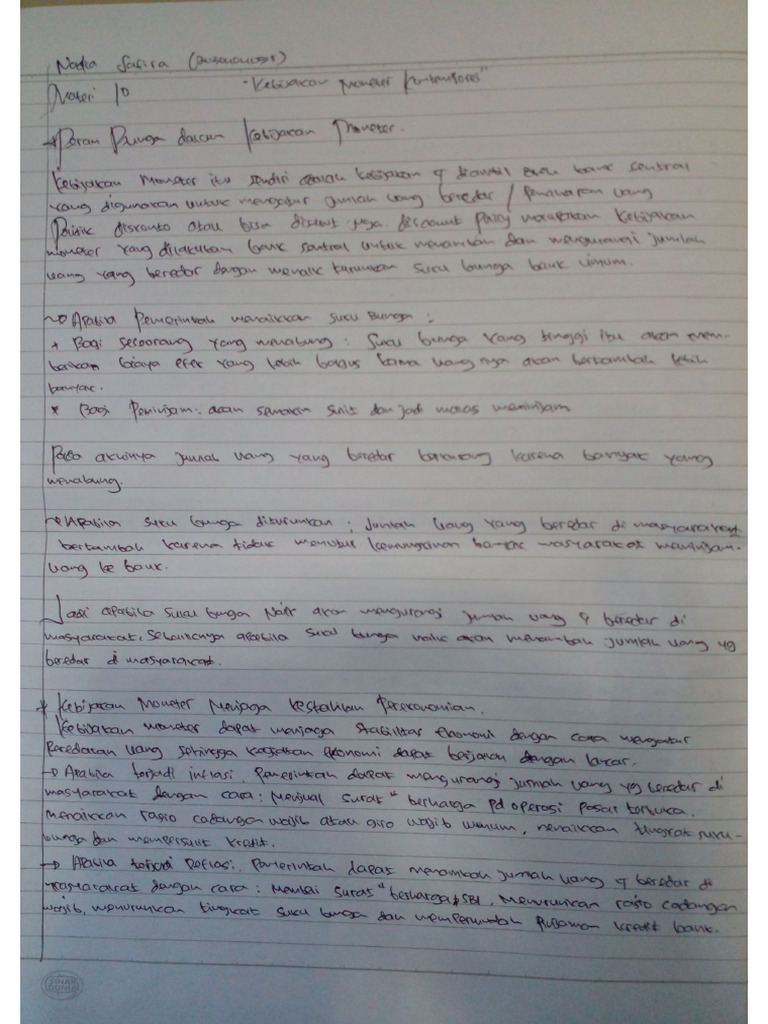 Nadia Safira
Materi 10 "Kebijakan Moneter Kontemporer"
→ Peran Bunga dalam Kebijakan Moneter.
Kebijakan Moneter itu sendiri adalah kebijakan yg diambil oleh bank sentral
yang digunakan untuk mengatur jumlah uang beredar / penawaran uang
Politik diskonto atau bisa disebut juga discount policy merupakan kebijakan
moneter yang dilakukan bank sentral untuk menambah dan mengurangi jumlah
uang yang beredar dengan menaik turunkan suku bunga bank umum.
→ Apabila Pemerintah menaikkan suku Bunga :
* Bagi seseorang yang menabung : Suku bunga yang tinggi itu akan mem-
berikan efek yang lebih bagus karna uang nya akan bertambah lebih
banyak.
* Bagi Peminjam : akan semakin sulit dan jadi malas meminjam
Pada akhirnya jumlah uang yang beredar berkurang karena banyak yang
menabung.
→ Apabila suku bunga diturunkan ; jumlah uang yang beredar di masyarakat
bertambah karena tidak menutup kemungkinan banyak masyarakat meminjam
uang ke bank.
Jadi apabila suku bunga Naik akan mengurangi jumlah uang yg beredar di
masyarakat. Sebaliknya apabila suku bunga akan menambah jumlah uang yg
beredar di masyarakat.
* Kebijakan Moneter Menjaga Kestabilan Perekonomian.
Kebijakan moneter dapat menjaga stabilitas ekonomi dengan cara mengatur
Peredaran uang sehingga kegiatan ekonomi dapat berjalan dengan lancar.
→ Apabila terjadi inflasi, Pemerintah dapat mengurangi jumlah uang yg beredar di
masyarakat dengan cara : Menjual surat" berharga pd operasi pasar terbuka,
menaikkan rasio cadangan wajib atau giro wajib umum, menaikkan tingkat suku
bunga dan mempersulit kredit.
→ Apabila terjadi Deflasi, Pemerintah dapat menambah jumlah uang yg beredar di
masyarakat dengan cara : Membeli surat" berharga SBI, Menurunkan rasio cadangan
wajib, menurunkan tingkat suku bunga dan mempermudah pinjaman kredit bank.
SINAR
DUNIA